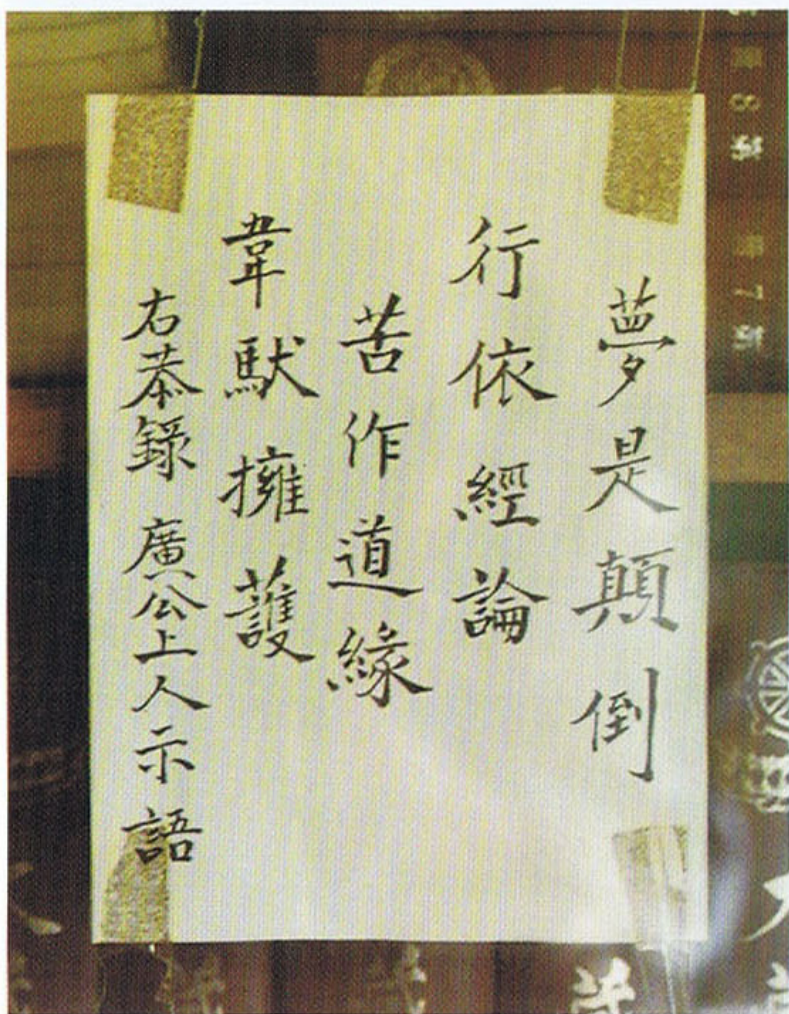 夢是顛倒
行依經論
苦作道緣
韋馱擁護
右恭錄 廣公上人示語